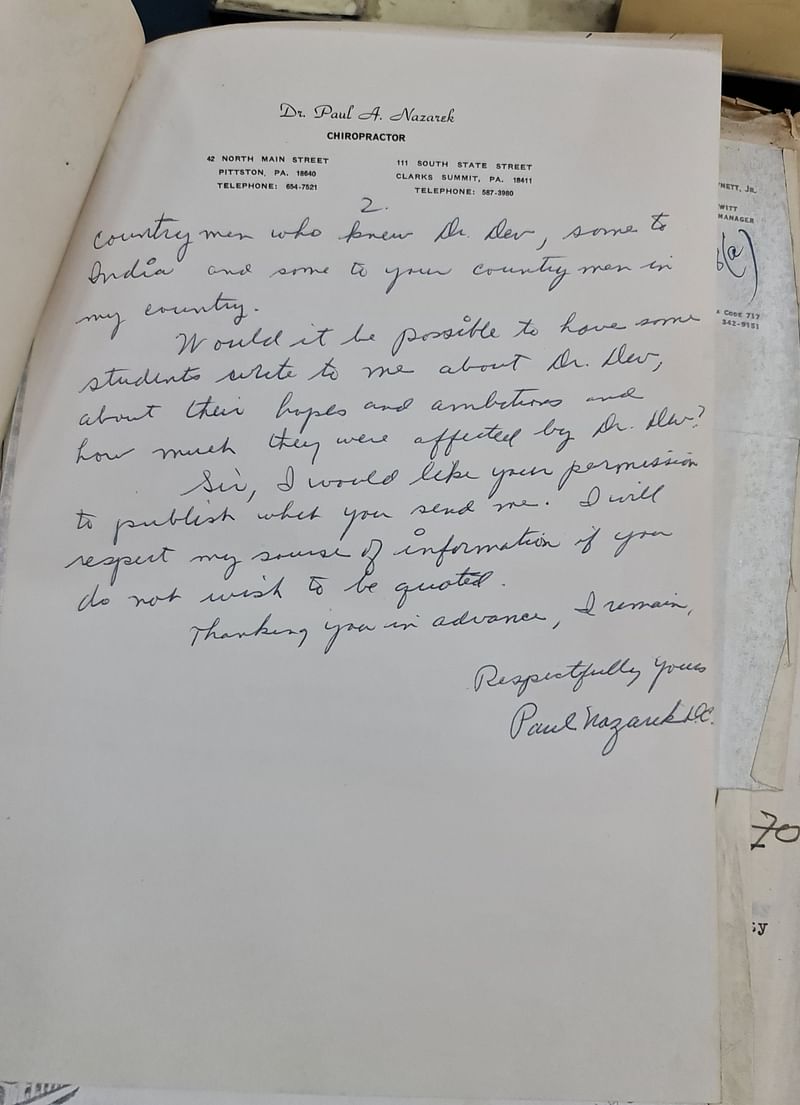 Dr. Paul A. Nazarek
CHIROPRACTOR
42 NORTH MAIN STREET
PITTSTON, PA. 18640
TELEPHONE: 654-7521
111 SOUTH STATE STREET
CLARKS SUMMIT, PA. 18411
TELEPHONE: 587-3980
2.
countrymen who knew Dr. Dev, some to
India and some to your countrymen in
my country.
Would it be possible to have some
students write to me about Dr. Dev,
about their hopes and ambitions and
how much they were affected by Dr. Dev?
Sir, I would like your permission
to publish what you send me. I will
respect my source of information if you
do not wish to be quoted.
Thanking you in advance, I remain,
Respectfully yours
Paul Nazarek D.C.
NETT, JR.
WITT
MANAGER
(a)
CODE 717
342-9151
70